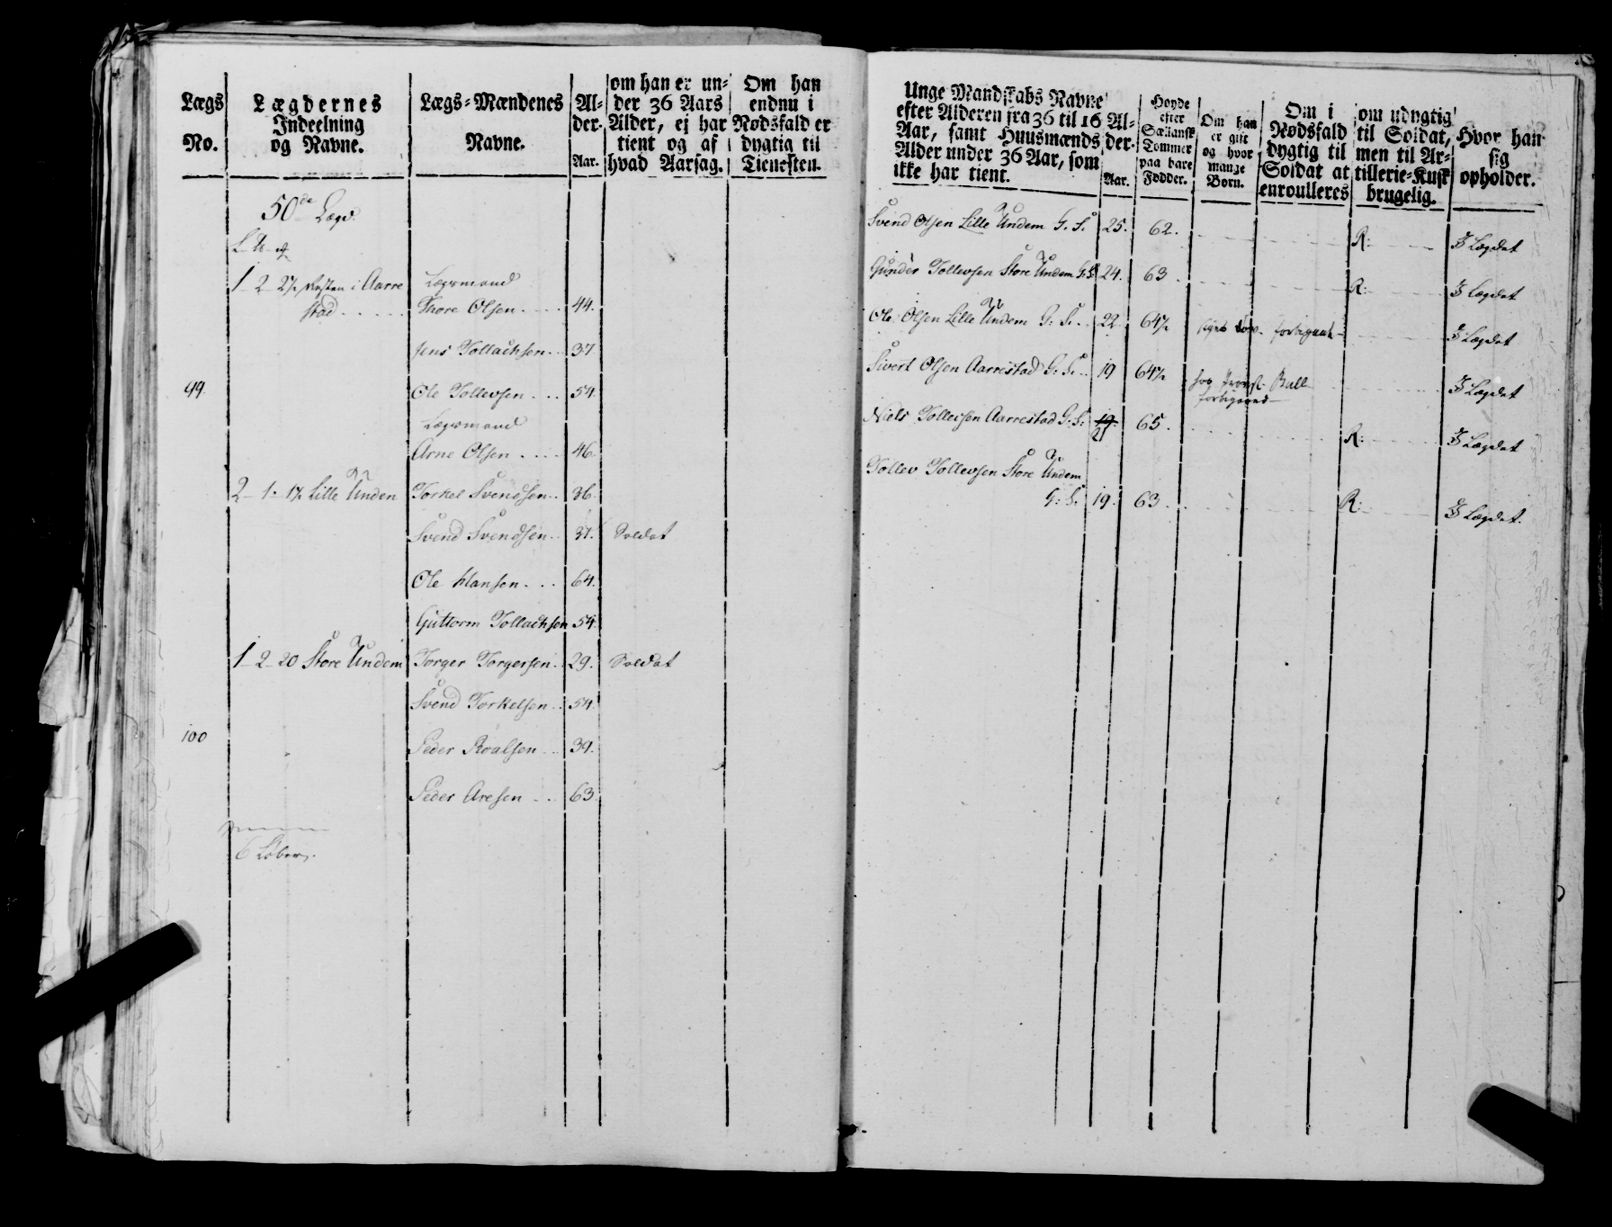 Lægs No.
Lægdernes Indeelning og Navne.
Lægs-Mændenes Navne.
Al-der. Aar.
om han er un-der 36 Aars Alder, ej har tient og af hvad Aarsag.
Om han endnu i Nødsfald er dygtig til Tienesten.
50de Lægd
1 - 2 - 2½ i Aarre
stad
Lægsmand
Thore Olsen 44.
Jens Tollachsen 37
49
Ole Tollevsen 54
Lægsmand
Arne Olsen 46
2 - 1 - 1½ Lille Unden Torkel Svendsen 36
Svend Svendsen 31. Soldat
Ole Hansen 64.
Guttorm Tollachsen 54
1 - 2 - 20 Store Undem Torger Torgersen 29. Soldat
Svend Torkelsen 54
100
Peder Roalsen 39.
Peder Aresen 63
6 Løber.
Unge Mandskabs Navne efter Alderen fra 36 til 16 Aar, samt Huusmænds Alder under 36 Aar, som ikke har tient.
Al-der. Aar.
Høyde efter Sællansk Tommer paa bare Fødder.
Om han er gift og hvor mange Børn.
Om i Nødsfald dygtig til Soldat at enroulleres
om udygtig til Soldat, men til Ar-tillerie-Kusk brugelig.
Hvor han sig opholder.
Svend Olsen Lille Undem G. S. 25. 62. R: I Lægdet
Gunder Tollevsen Store Undem G: S: 24. 63 R: I Lægdet
Ole Olsen Lille Undem G: S: 22. 64½ I Lægdet
Sivert Olsen Aarrestad G: S: 19 64½ I Lægdet
Niels Tollevsen Aarrestad G: S: 19. 21 65. R: I Lægdet
Tollev Tollevsen Store Undem
G: S: 19. 63 R: I Lægdet.